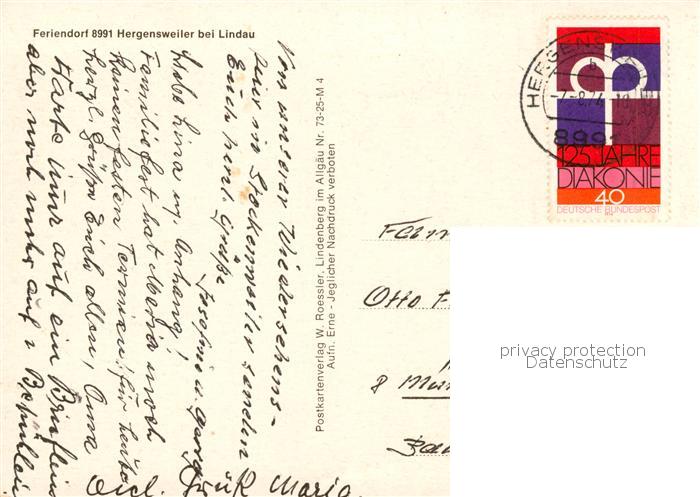 Feriendorf 8991 Hergensweiler bei Lindau
Von unserer Wiedersehens-
feier in Stockenweiler senden
Euch herzl. Grüße
Josefine u. Georg
Liebe Lina m. Anhang!
Familienfest hat Maria noch
keinen festen Termin! für heute
herzl. Grüße Euch allen, Oma
Warte nur auf ein Brieflein
aber noch mehr auf 1 Besuchlein
Gruß Maria.
Postkartenverlag W. Roessler, Lindenberg im Allgäu Nr. 73-25-M 4
Aufn. Erne - Jeglicher Nachdruck verboten
HERGENS
b
-7.-8.74-18
8991
125 JAHRE
DIAKONIE
40
DEUTSCHE BUNDESPOST
Fam
Otto F
8 Mün
privacy protection
Datenschutz